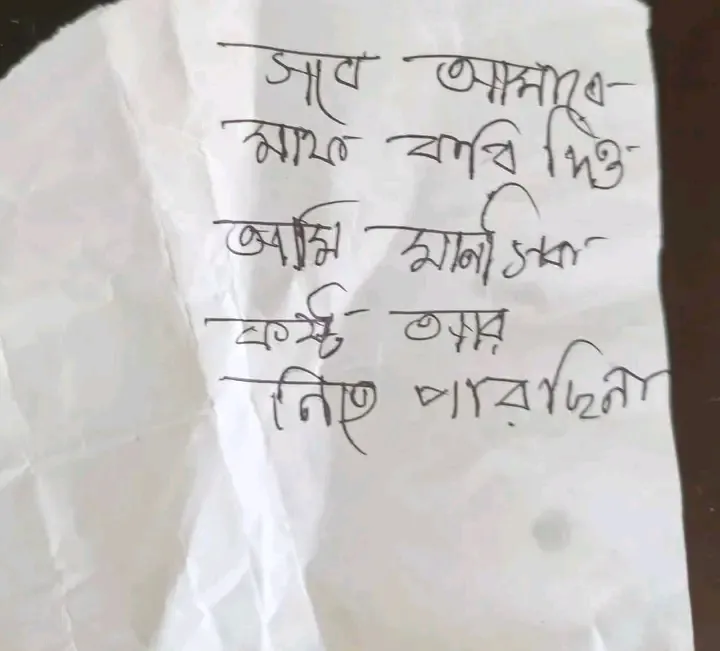 সবে আমারে
মাফ করি দিও
আমি মানসিক
কষ্ট আর
নিতে পারছিনা